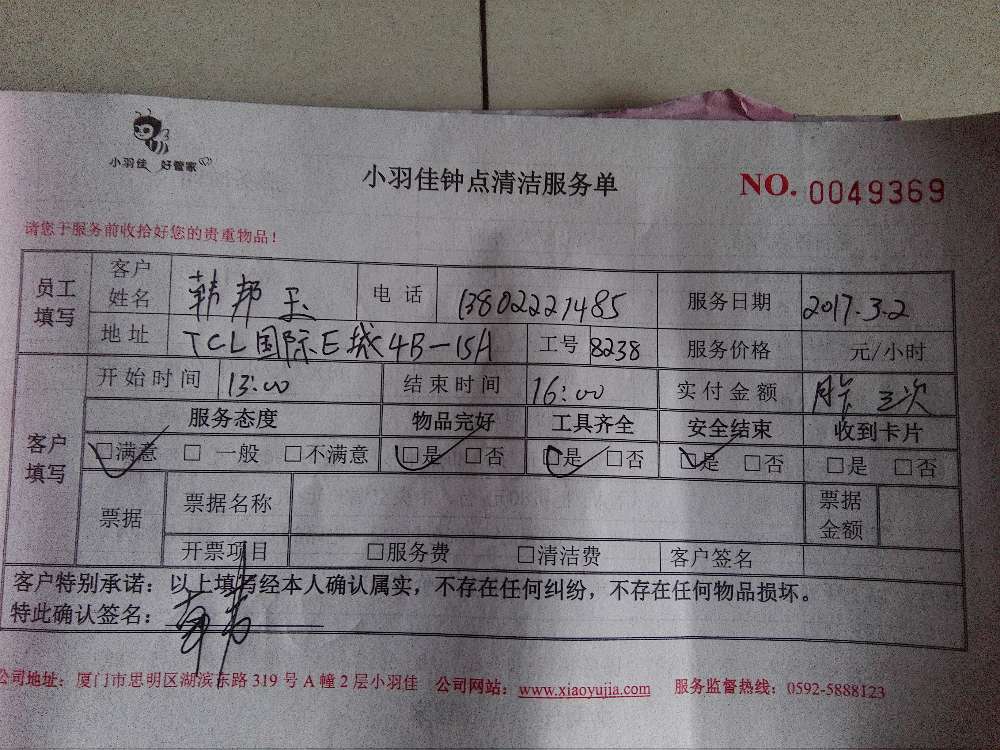 小羽佳 好管家
小羽佳钟点清洁服务单
NO. 0049369
请您于服务前收拾好您的贵重物品！
员工填写 客户姓名 韩邦玉 电话 13802221485 服务日期 2017.3.2
地址 TCL国际E城4B-15A 工号 8238 服务价格 元/小时
客户填写 开始时间 13:00 结束时间 16:00 实付金额 月卡 三次
服务态度 物品完好 工具齐全 安全结束 收到卡片
□满意 □一般 □不满意 □是 □否 □是 □否 □是 □否 □是 □否
票据 票据名称 票据金额
开票项目 □服务费 □清洁费 客户签名
客户特别承诺：以上填写经本人确认属实，不存在任何纠纷，不存在任何物品损坏。
特此确认签名：
公司地址：厦门市思明区湖滨东路 319 号 A 幢 2 层小羽佳 公司网站：www.xiaoyujia.com 服务监督热线：0592-5888123